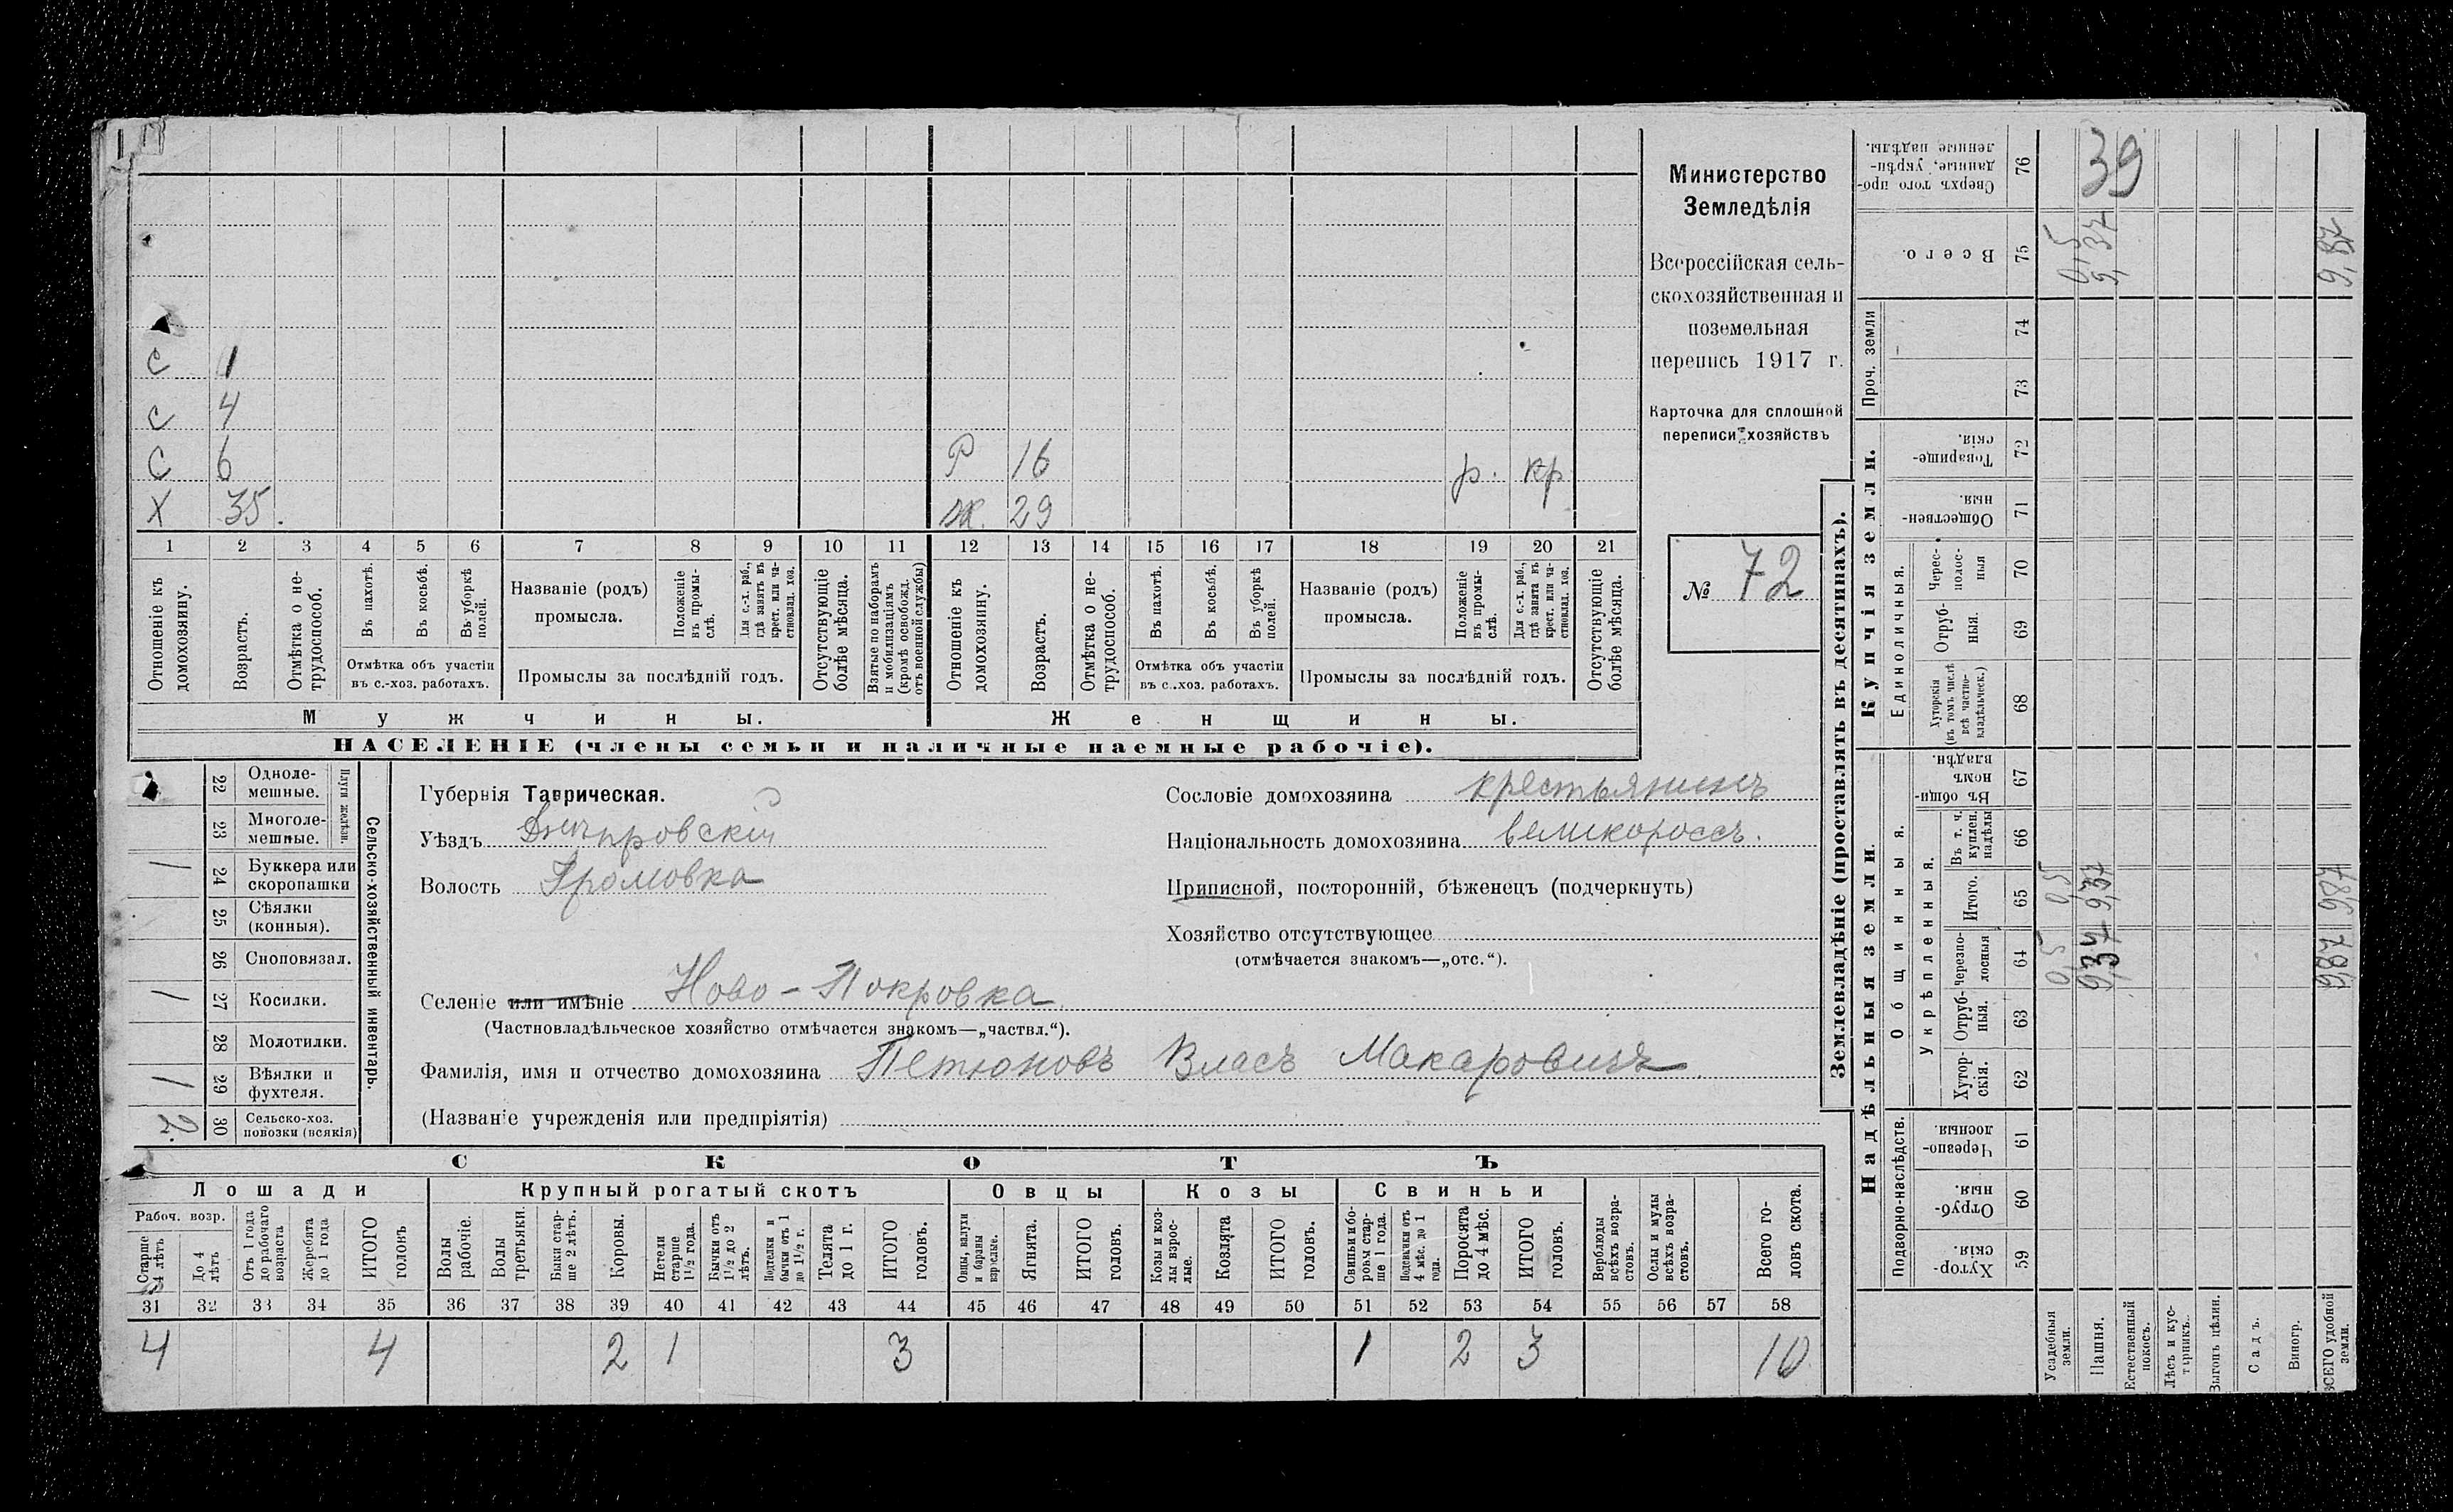 С 1
С 4
С 6 Р 16 р. кр
Х 35. ж. 29
1 2 3 4 5 6 7 8 9 10 11 12 13 14 15 16 17 18 19 20 21
Отношеніе къ домохозяину.
Возрастъ.
Отмѣтка о не-трудоспособ.
Въ пахотѣ.
Въ косьбѣ.
Въ уборкѣ полей.
Отмѣтка объ участіи
въ с.-хоз. работахъ.
Названіе (родъ)
промысла.
Положеніе въ промы-слѣ.
Для с.-х. раб., гдѣ занятъ въ крест. или ча-стновлад. хоз.
Промыслы за послѣдній годъ.
Отсутствующіе болѣе мѣсяца.
Взятые по наборамъ и мобилизаціямъ (кромѣ освобожд. отъ военной службы)
Отношеніе къ домохозяину.
Возрастъ.
Отмѣтка о не-трудоспособ.
Въ пахотѣ.
Въ косьбѣ.
Въ уборкѣ полей.
Отмѣтка объ участіи
въ с.-хоз. работахъ.
Названіе (родъ)
промысла.
Положеніе въ промы-слѣ.
Для с.-х. раб., гдѣ занята въ крест. или ча-стновлад. хоз.
Промыслы за послѣдній годъ.
Отсутствующіе болѣе мѣсяца.
Мужчины. Женщины.
НАСЕЛЕНІЕ (члены семьи и наличные наемные рабочіе).
Министерство
Земледѣлія
Всероссійская сель-
скохозяйственная и
поземельная
перепись 1917 г.
Карточка для сплошной
переписи хозяйствъ
№ 72
Сельско-хозяйственный инвентарь.
Плуги желѣзн.
22 Одноле-мешные.
23 Многоле-мешные.
24 Буккера или скоропашки 1
25 Сѣялки (конныя).
26 Сноповязал.
27 Косилки. 1
28 Молотилки.
29 Вѣялки и фухтеля. 1
30 Сельско-хоз. повозки (всякія) 2
Губернія Таврическая.
Уѣздъ Днѣпровскій
Волость Громовка
Сословіе домохозяина крестьянинъ
Національность домохозяина великороссъ.
Приписной, посторонній, бѣженецъ (подчеркнуть)
Хозяйство отсутствующее
(отмѣчается знакомъ—„отс.“).
Селеніе или имѣніе Ново-Покровка
(Частновладѣльческое хозяйство отмѣчается знакомъ—„частвл.“).
Фамилія, имя и отчество домохозяина Петюновъ Власъ Макаровичъ
(Названіе учрежденія или предпріятія)
СКОТЪ
Лошади Крупный рогатый скотъ Овцы Козы Свиньи
Рабоч. возр.
Старше 4 лѣтъ
До 4 лѣтъ
Отъ 1 года до рабочаго возраста
Жеребята до 1 года
ИТОГО головъ
Волы рабочіе.
Волы третьяки.
Быки стар-ше 2 лѣтъ.
Коровы.
Нетели старше 1½ года.
Бычки отъ 1½ до 2 лѣтъ.
Подтелки и бычки отъ 1 до 1½ г.
Телята до 1 г.
ИТОГО головъ.
Овцы, валухи и бараны взрослые.
Ягнята.
ИТОГО головъ.
Козы и коз-лы взрос-лые.
Козлята
ИТОГО головъ.
Свиньи и бо-ровы стар-ше 1 года.
Подсвинки отъ 4 мѣс. до 1 года.
Поросята до 4 мѣс.
ИТОГО головъ.
Верблюды всѣхъ возра-стовъ.
Ослы и мулы всѣхъ возра-стовъ.
Всего го-ловъ скота.
31 32 33 34 35 36 37 38 39 40 41 42 43 44 45 46 47 48 49 50 51 52 53 54 55 56 57 58
4 4 2 1 3 1 2 3 10
Землевладѣніе (проставлять въ десятинахъ).
Купчія земли.
Надѣльныя земли.
Сверхъ того про-данные, укрѣп-ленные надѣлы. 76 39
Всего. 75 0,5 9,37 9,87
Проч. земли 74 73
Товарище-скія. 72
Обществен-ныя. 71
Единоличныя.
Черес-полос-ныя 70
Отруб-ныя. 69
Хуторскія (въ томъ числѣ всѣ частно-владѣльческ.) 68
Общинныя.
Въ общин-номъ владѣн. 67
Укрѣпленныя.
Въ т. ч. куплен. надѣлы 66
Итого. 65 0,5 9,37 9,87
черезпо-лосныя 64 0,5 9,37 9,87
Отруб-ныя. 63
Хутор-скія. 62
Подворно-наслѣдств.
Черезпо-лосныя. 61
Отруб-ныя. 60
Хутор-скія. 59
Усадебныя земли.
Пашня.
Естественный покосъ.
Лѣсъ и кус-тарникъ.
Выгонъ цѣлин.
Садъ.
Виногр.
ВСЕГО удобной земли.